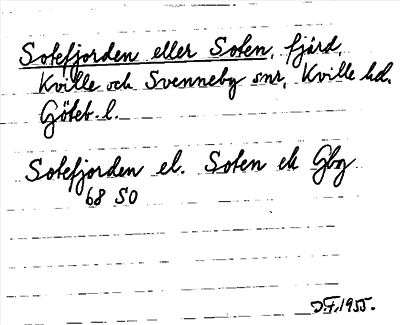 Sotefjorden eller Soten, fjärd,
Kville och Svenneby snr, Kville hd.
Göteb. l.
Sotefjorden el. Soten ek Gbg
68 SO
J.F. 1955.